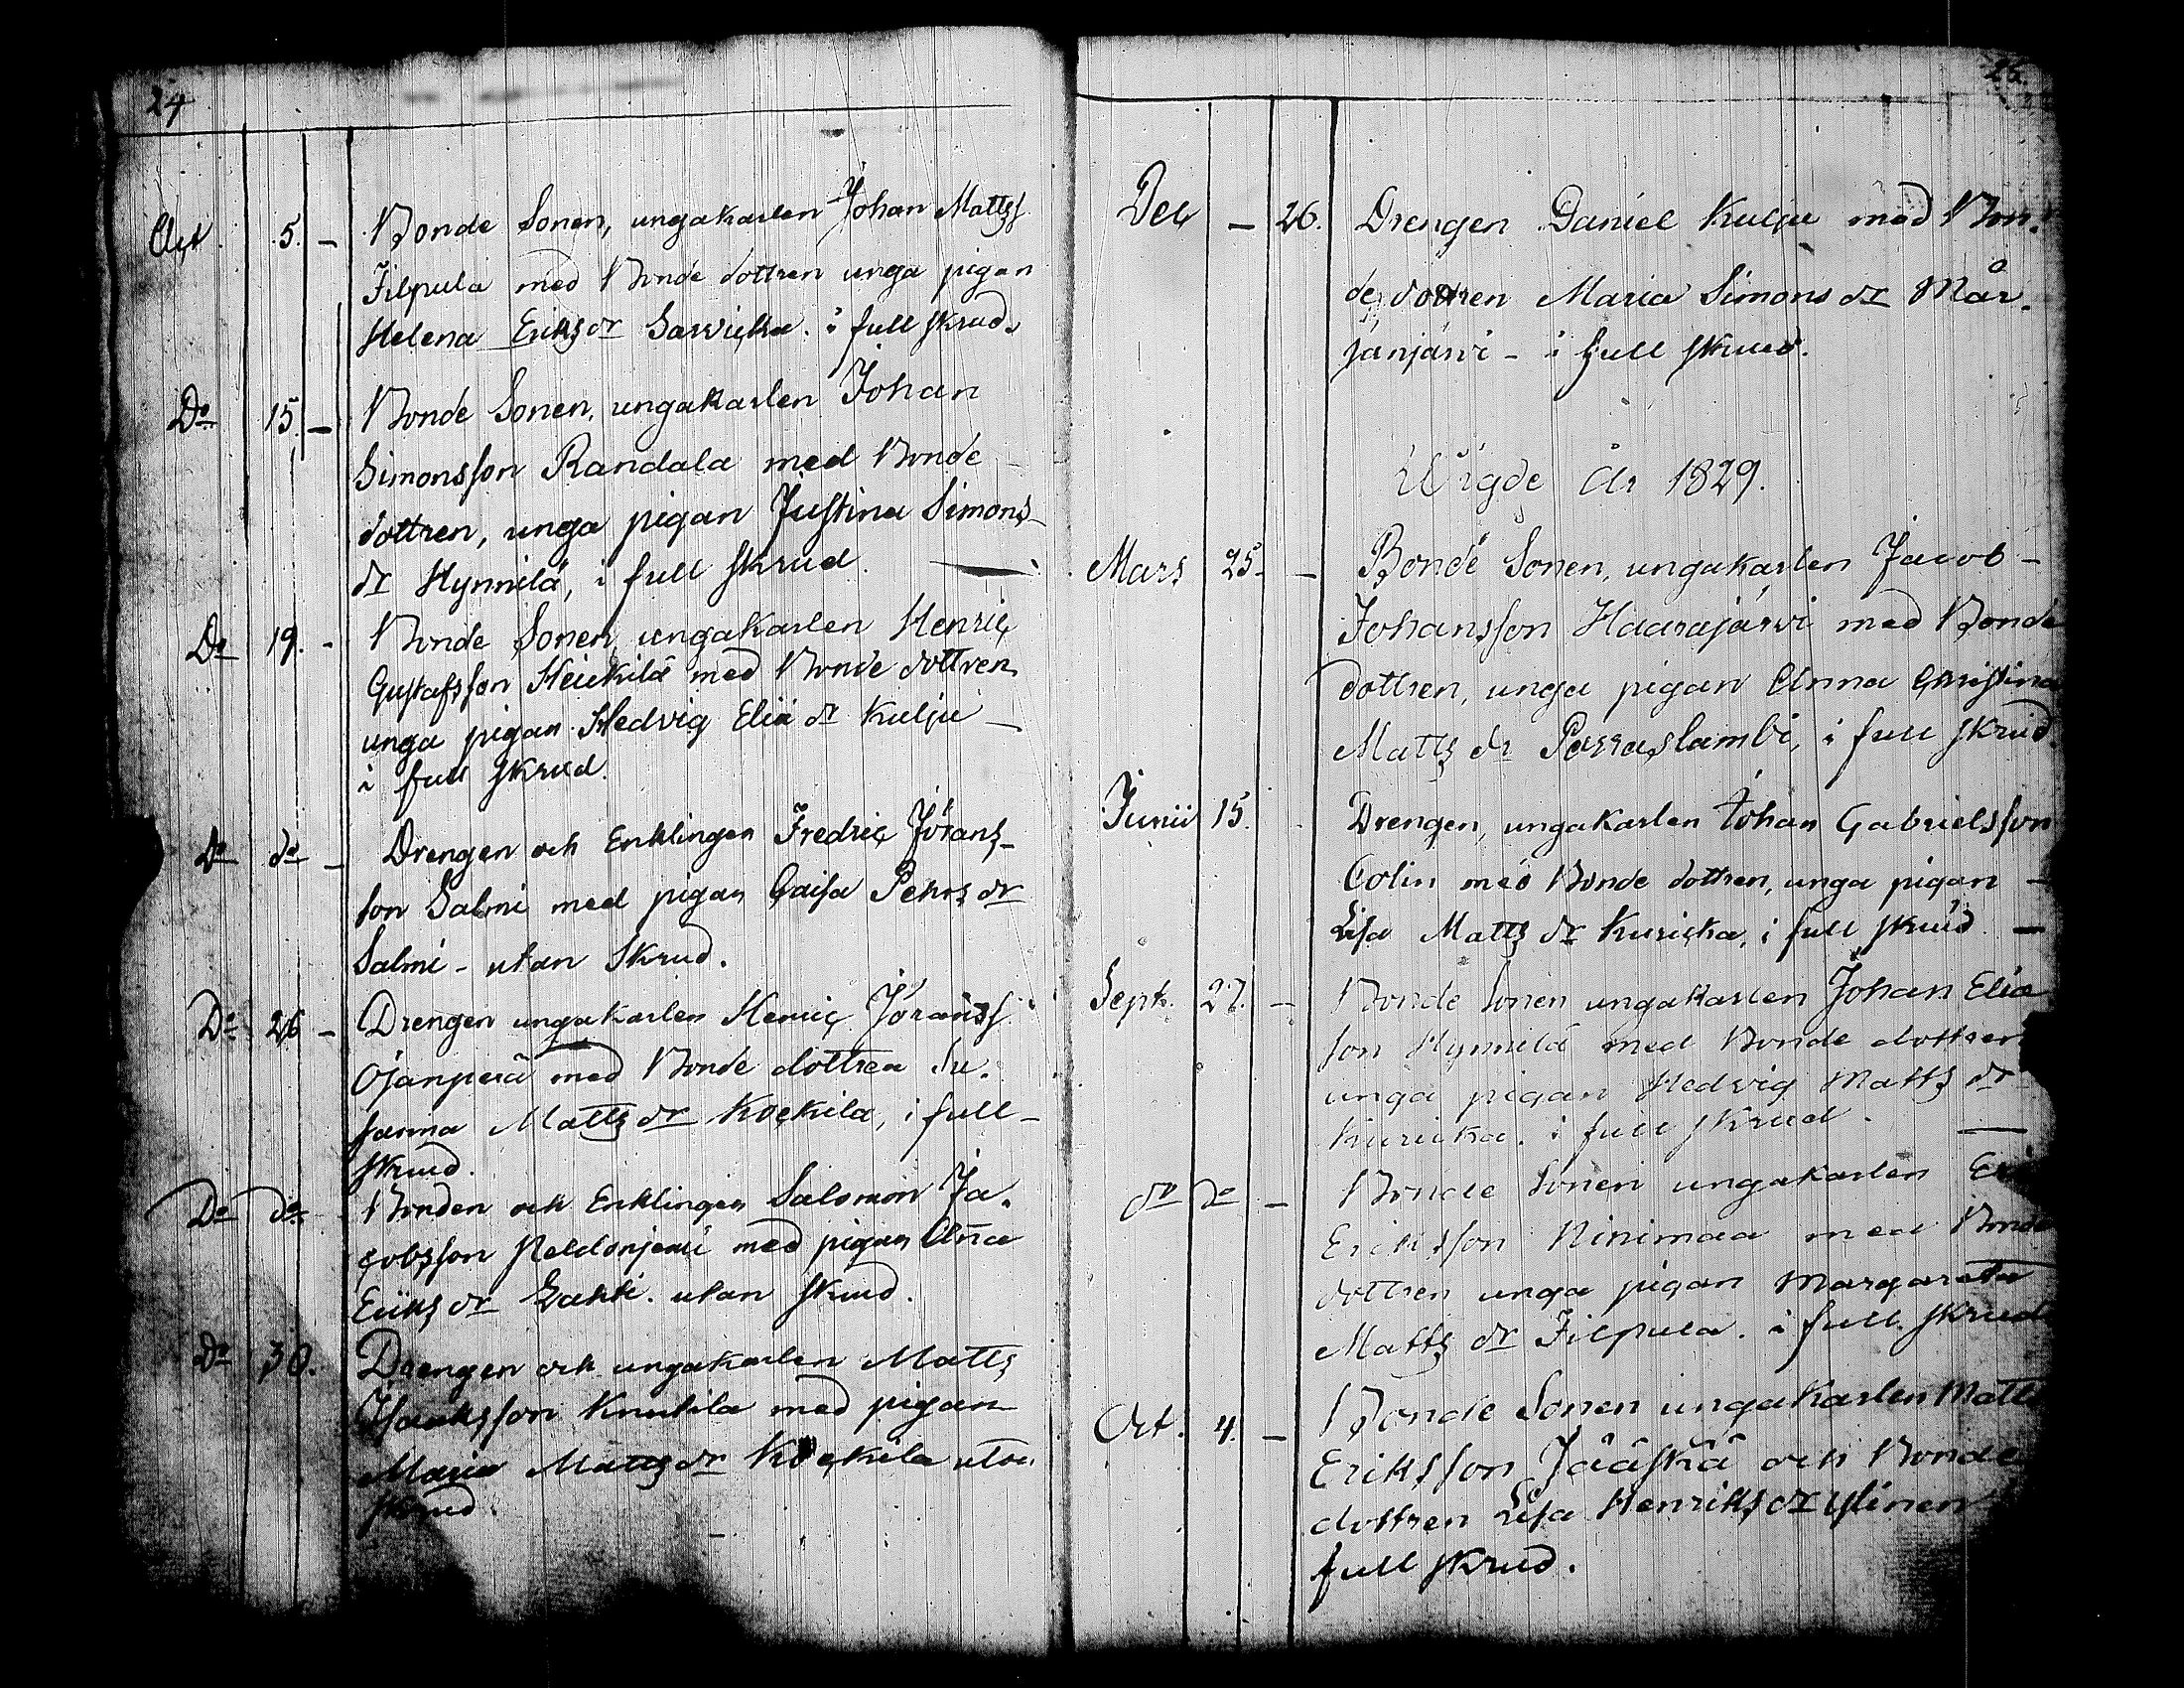 24
Oct. 5. - Bonde Sonen, ungakarlen Johan Mattss.
Filpula med Bonde dottren unga pigan
Helena Eriks dr Sarvicka. i full skrud.
Do 15. - Bonde Sonen, ungakarlen Johan
Simonsson Randala med Bonde
dottren, unga pigan Justina Simons-
dr Hynnilä, i full skrud.
Do 19. - Bonde Sonen, ungakarlen Henric
Gustafsson Heickilä med Bonde dottren
unga pigan Hedvig Eliä dr Kulju -
i full skrud.
Do do - Drengen och Enklingen Fredric Jörans-
son Salmi med pigan Caisa Pehrs dr
Salmi - utan Skrud.
Do 26 - Drengen ungakarlen Henric Jöranss.
Ojanperä med Bonde dottren Su-
sanna Matts dr Kockila, i full -
skrud.
Do do - Bonden och Enklingen Salomon Ja-
cobsson Peldonjemi med pigan Anna
Eriks dr Lahti. utan skrud.
Do 30. Drengen och ungakarlen Matts
Isaaksson Knutila med pigan
Maria Matts dr Kockila utan
skrud.
25.
Dec - 26. Drengen Daniel Kulju med Bon-
de dottren Maria Simons dr Mär-
jänjärvi - i full skrud.
Wigde År 1829.
Mars 25. - Bonde Sonen, ungakarlen Jacob -
Johansson Haarajärvi med Bonde
dottren, unga pigan Anna Christina
Matts dr Parraslambi, i full skrud.
Junii 15. Drengen, ungakarlen Johan Gabrielsson
Colin med Bonde dottren, unga pigan -
Lisa Matts dr Kuricka, i full skrud -
Sept. 27. - Bonde Sonen ungakarlen Johan Elia
son Hynnilä med Bonde dottren
unga pigan Hedvig Matts dr
Kuricka. i full skrud. -
do do - Bonde Sonen ungakarlen
Eriksson Ninimaa med Bonde
dottren unga pigan Margareta
Matts dr Filpula. i full skrud
Oct. 4. - Bonde Sonen ungakarlen Matts
Eriksson Jääskä och Bonde
dottren Lisa Henriks dr Ylinen
full skrud.